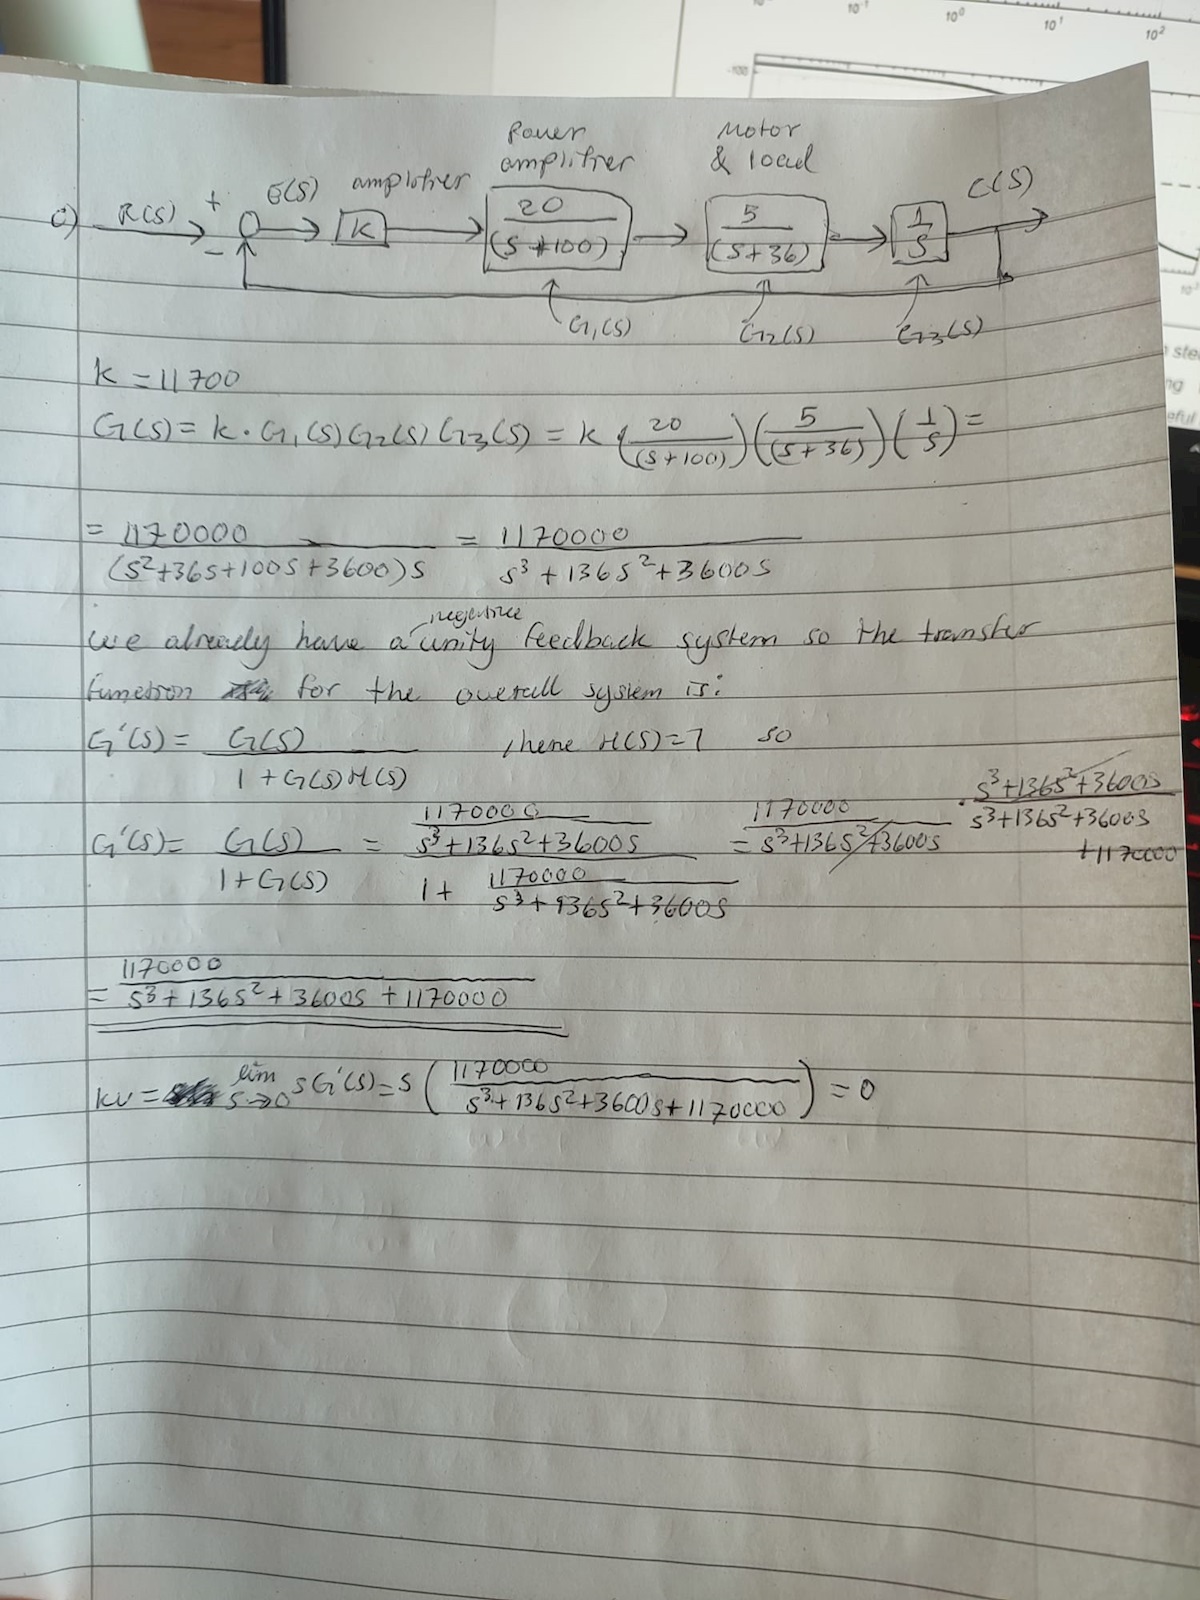 10⁻¹ 10⁰ 10¹ 10²
-100
Power amplifier
Motor & load
c) R(S) + - E(S) amplifier C(S)
K 20/(S+100) 5/(S+36) 1/S
G₁(S) G₂(S) G₃(S)
K = 11700
G(S) = K·G₁(S)G₂(S)G₃(S) = K (20/(S+100))(5/(S+36))(1/S) =
= 1170000/(S²+36S+100S+3600)S = 1170000/S³+136S²+3600S
we already have a negative unity feedback system so the transfer
function for the overall system is:
G'(S) = G(S)/1+G(S)H(S) , here H(S)=1 so
G'(S) = G(S)/1+G(S) = 1170000/S³+136S²+3600S / 1+ 1170000/S³+136S²+3600S = 1170000/S³+136S²+3600S · S³+136S²+3600S/S³+136S²+3600S+1170000
= 1170000/S³+136S²+3600S+1170000
Kv = lim S→0 SG'(S) = S (1170000/S³+136S²+3600S+1170000) = 0